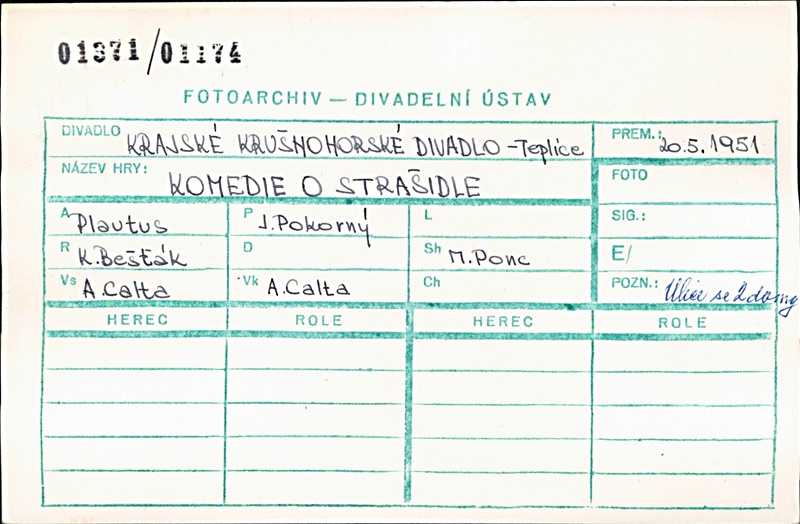 01371/01174
FOTOARCHIV — DIVADELNÍ ÚSTAV
DIVADLO KRAJSKÉ KRUŠNOHORSKÉ DIVADLO - Teplice PREM.: 20.5.1951
NÁZEV HRY: KOMEDIE O STRAŠIDLE FOTO
A Plautus P J. Pokorný L SIG.:
R K. Bešťák D Sh M. Ponc E/
Vs A. Calta Vk A. Calta Ch POZN.: Ulice se 2 domy
HEREC ROLE HEREC ROLE